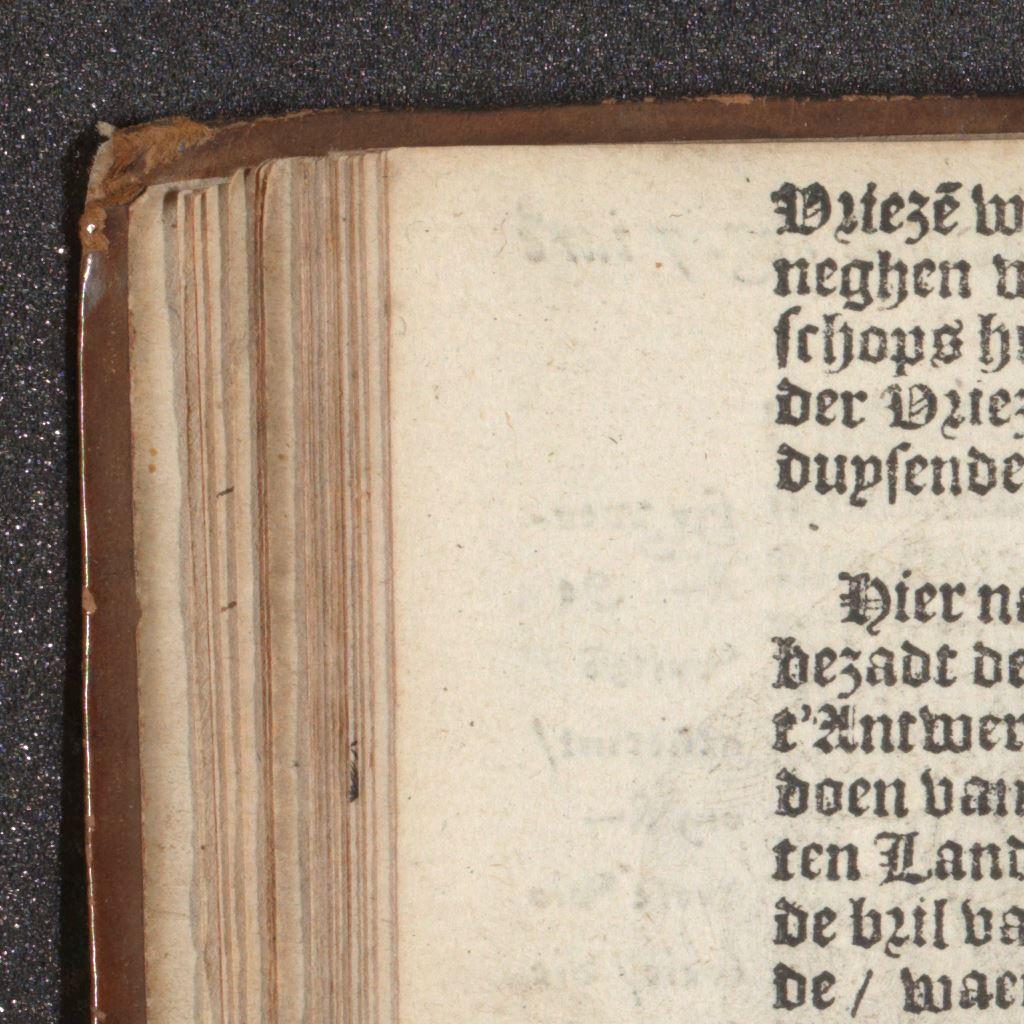 Vriezē
neghen
schops
der
duysende

Hier
bezadt
t'Antwer
doen van
ten Land
de bril va
de / waer